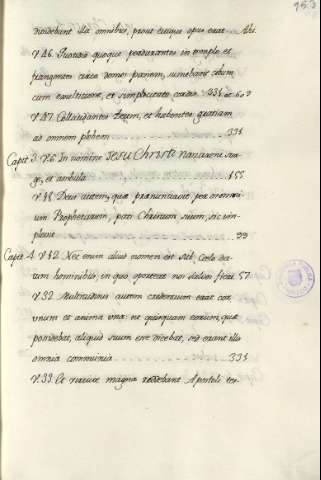 videbant illa omnibus, prout cuique opus erat. Ibi.
V.46. Quotidie quoque perdurantes in templo et
frangentes circa domos panem, sumebant cibum
cum exultatione, et simplicitate cordis. 334. et 60
V.47. Collaudantes Deum, et habentes gratiam
ad omnem plebem 334
Capit. 3. V.6. In nomine Jesu Christi nazareni sur-
ge, et ambula 155
V.18. Deus autem, quæ prænunciavit per os omni-
um Prophetarum, pati Christum suum, sic im-
plevit 99
Capit. 4. V.12. Nec enim aliud nomen est sub Coelo da-
tum hominibus, in quo oporteat nos salvos fieri 57
V.32. Multitudinis autem credentium erat cor
unum et anima una: ne quisquam eorum, quæ
possidebat, aliquid suum esse dicebat, sed erant illis
omnia communia 334
V.33. Et virtute magna reddebant Apostoli tes-